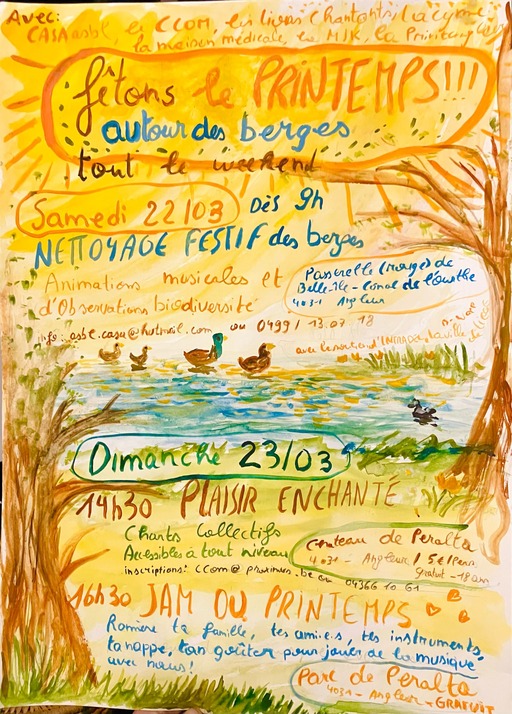 Avec:
CASA asbl, le CCOM, les livres Chantants, la
la maison médicale, la MJK, la
fêtons le PRINTEMPS!!!
autour des berges
tout le weekend
Samedi 22/03 Dès 9h
NETTOYAGE FESTIF des berges
Animations musicales et
d'Observations biodiversité
Passerelle (rouge) de
Belle-Ile - Canal de l'ourthe
4031 Angleur
info: asbl.casa@hotmail.com ou 0499/13.07.18
avec le soutien d'
Dimanche 23/03
14h30 PLAISIR ENCHANTÉ
Chants Collectifs
Accessibles à tout niveau
inscriptions: ccom@proximus.be ou 04366 10 61
Chateau de Peralta
4031 - Angleur / 5€/Pers.
gratuit -18 ans
16h30 JAM DU PRINTEMPS
Ramène ta famille, tes ami.e.s, tes instruments,
ta nappe, ton goûter pour jouer de la musique
avec nous!
Parc de Peralta
4031 - Angleur - GRATUIT